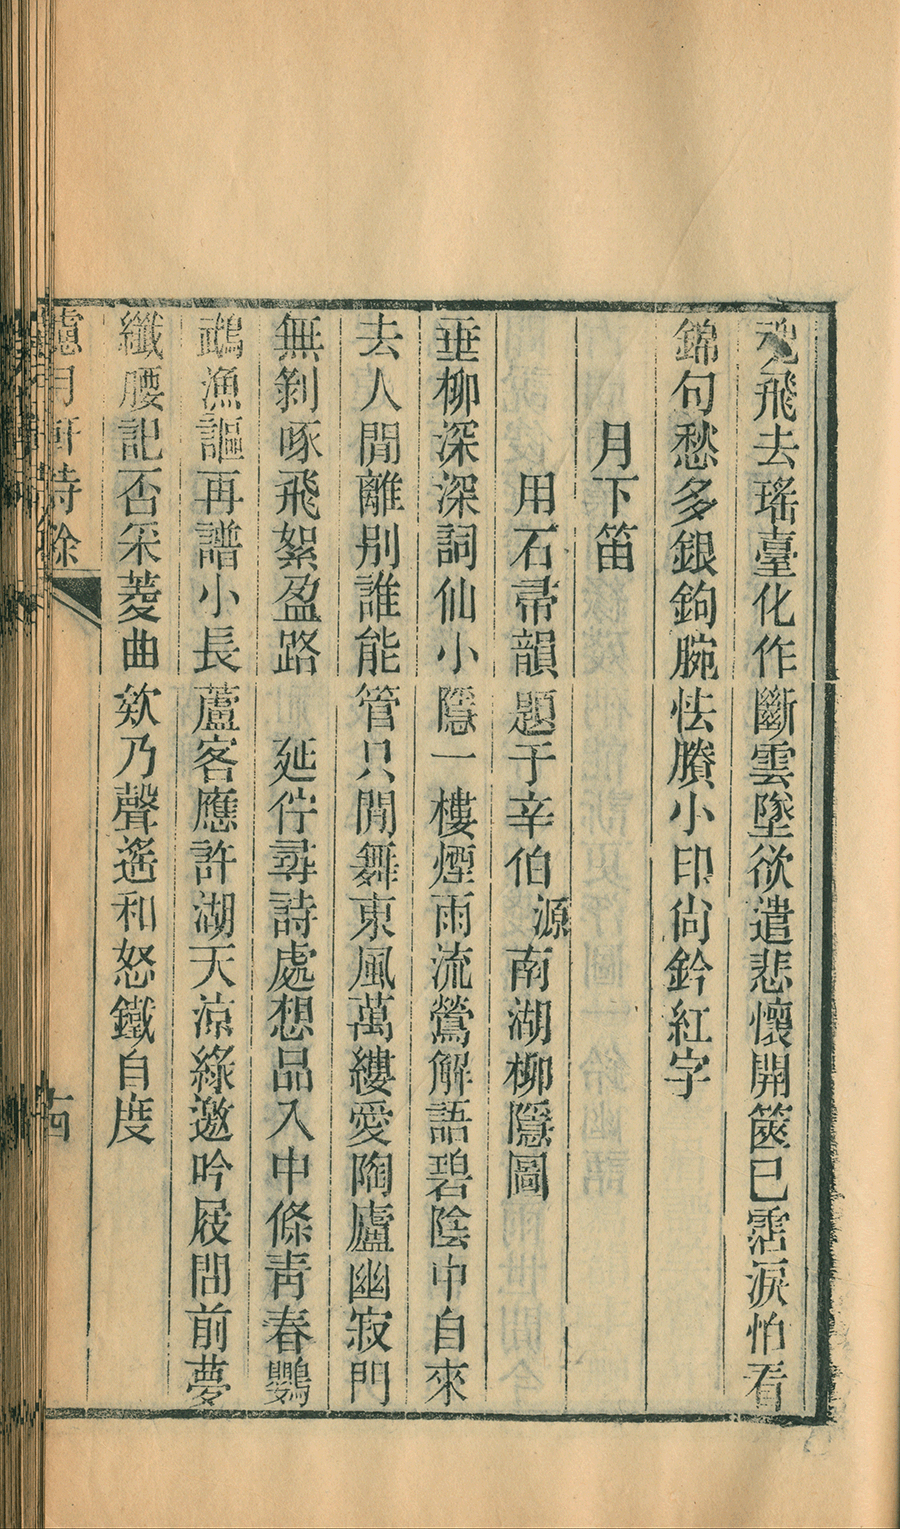 魂飛去瑤臺化作斷雲墜欲遣悲懷開篋已霑淚怕看
錦句愁多銀鉤腕怯賸小印尙鈐紅字
月下笛
用石帚韻題于辛伯源南湖柳隱圖
垂柳深深詞仙小隱一樓煙雨流鶯解語碧陰中自來
去人閒離別誰能管只閒舞東風萬縷愛陶廬幽寂門
無剝啄飛絮盈路　延佇尋詩處想品入中條靑春鸚
鵡漁謳再譜小長蘆客應許湖天涼綠邀吟屐問前夢
纖腰記否采菱曲欸乃聲遙和怒鐵自度
慮月軒詩餘
古